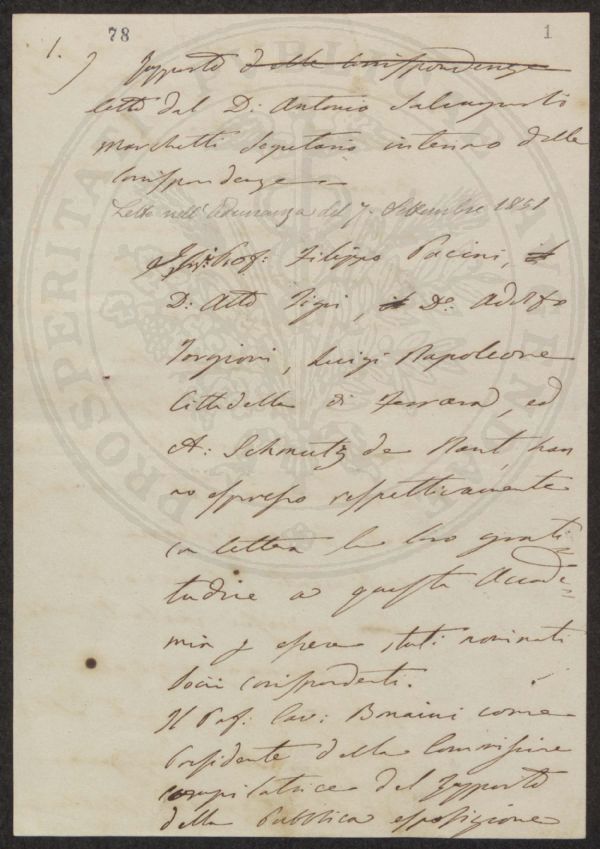 78
1
1.
Rapporto delle Corrispondenze
letto dal D: Antonio Salvagnoli
Marchetti Segretario interino delle
Corrispondenze
Letto nell'Adunanza del 7. Settembre 1851
Prof: Filippo Pacini, il
D: Atto Tigri, il D: Adolfo
Targioni, Luigi Napoleone
Cittadella di Ferrara, ed
A: Schmutz de Nant, han
no espresso respettivamente
con lettera la loro grati
tudine a questa Accade
mia p essere stati nominati
Socii corrispondenti.
Il Prof: Cav: Bonaini come
Presidente della Commissione
compilatrice del Rapporto
della Pubblica esposizione
PROSPERITATI PUBLICAE AUGENDAE